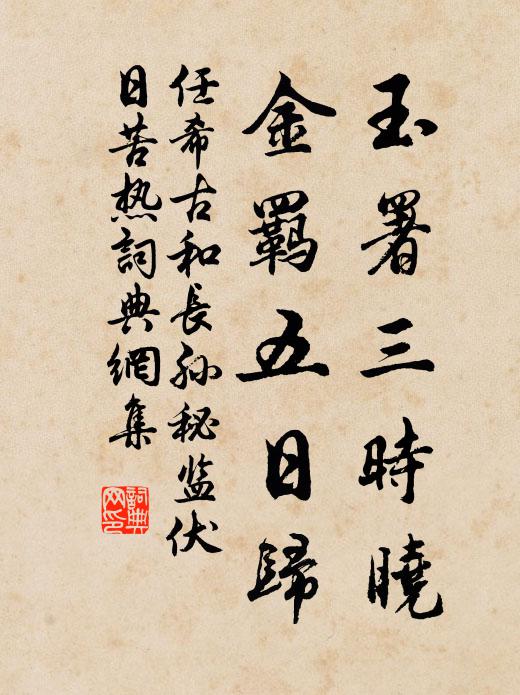 玉署三時曉
金羈五日歸
任希古和長孫秘监伏
日苦热詞典網集
詞典
网印